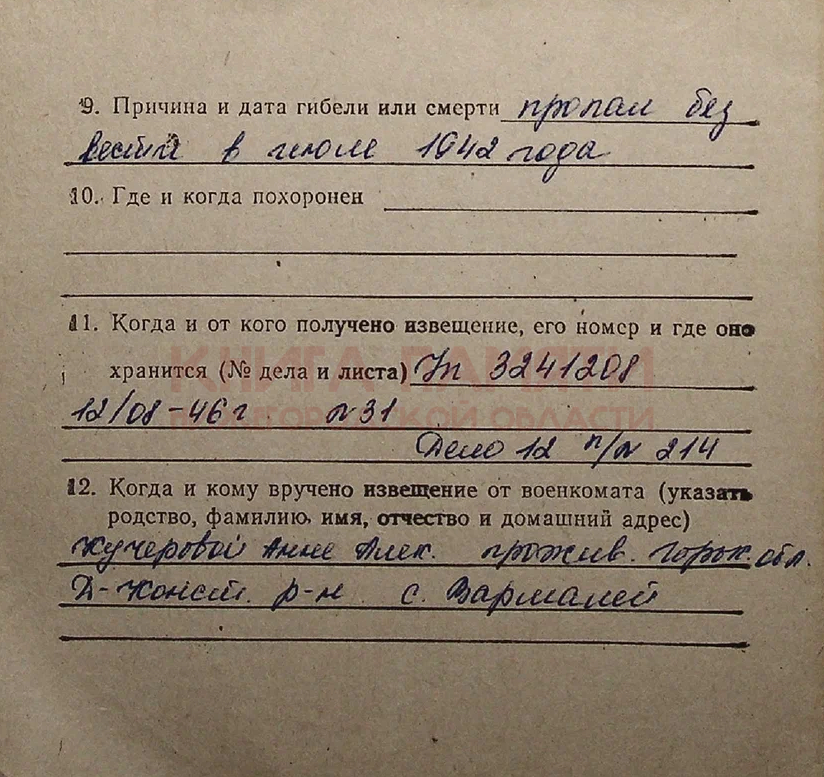 9. Причина и дата гибели или смерти пропал без
вести в июле 1942 года
10. Где и когда похоронен
11. Когда и от кого получено извещение, его номер и где оно
хранится (№ дела и листа) Уп 3241208
12/08-46 г N31
Дело 12 п/N 214
12. Когда и кому вручено извещение от военкомата (указать
родство, фамилию, имя, отчество и домашний адрес)
Кучеровой Анне Алек. прожив. Горьк. обл.
Д-Конст. р-н с. Вармалей
КНИГА ПАМЯТИ
НИЖЕГОРОДСКОЙ ОБЛАСТИ